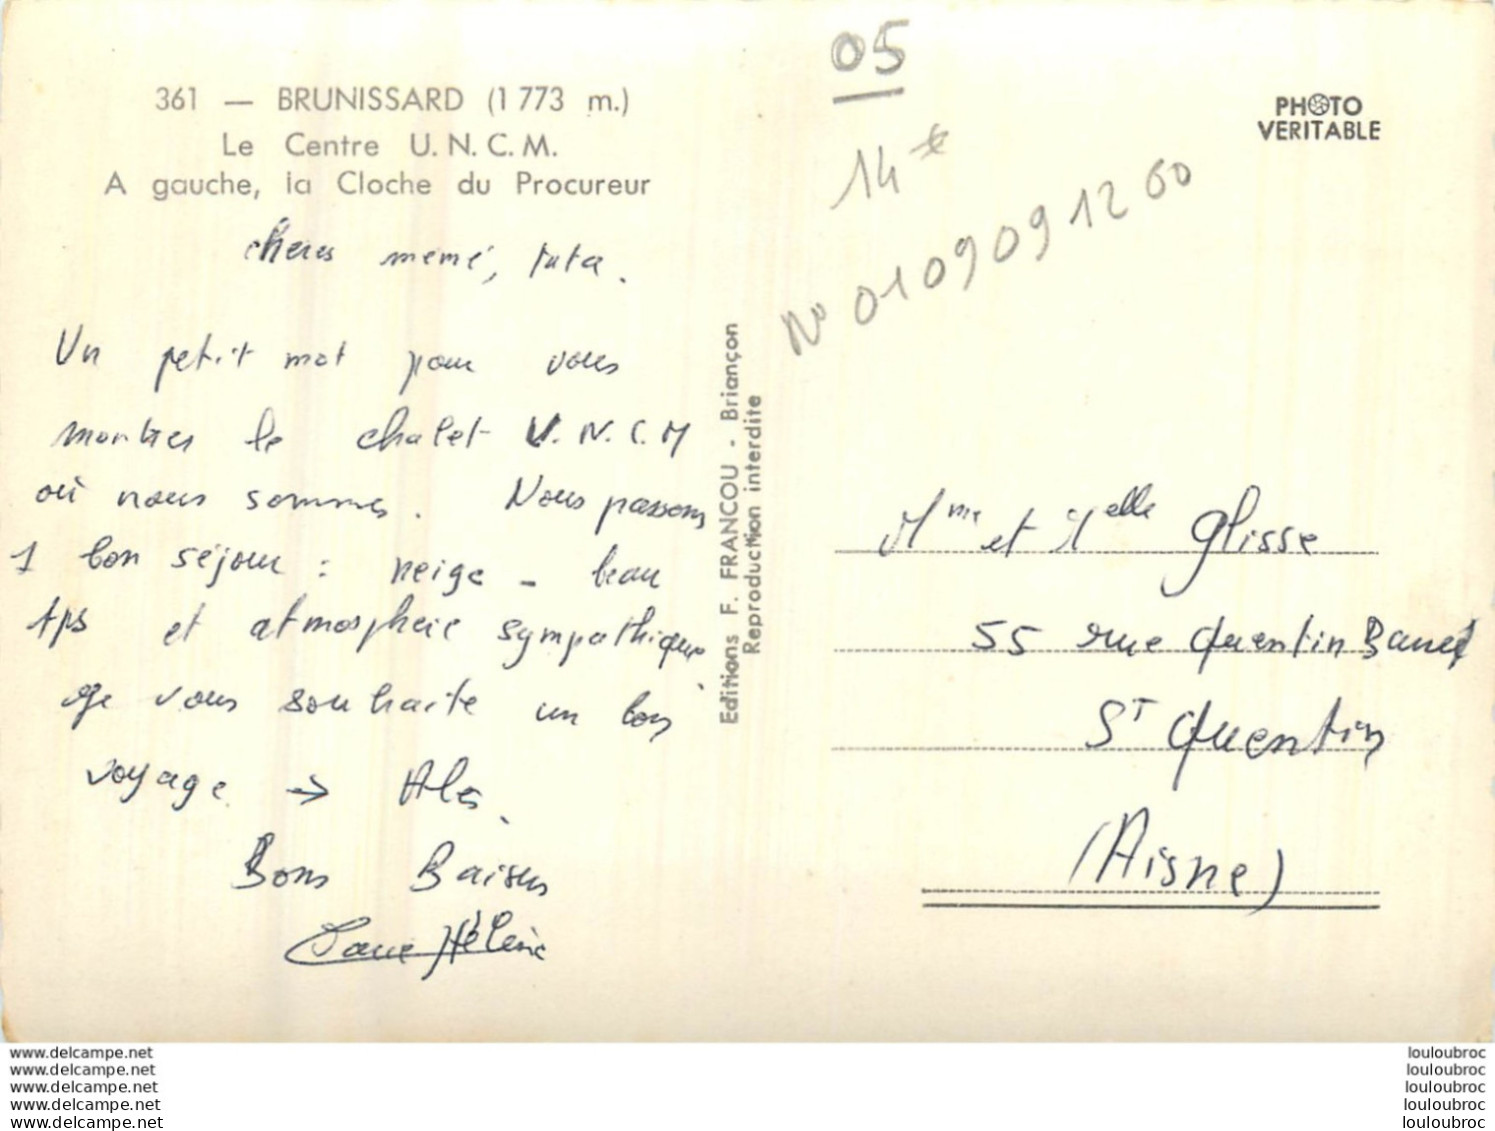 361 — BRUNISSARD (1 773 m.)
Le Centre U. N. C. M.
A gauche, la Cloche du Procureur
chères mémé, tata.
Un petit mot pour vous
montrer le chalet U.N.C.M
où nous sommes. Nous passons
1 bon séjour : neige - beau
tps et atmosphère sympathique.
Je vous souhaite un bon
voyage → Alès.
Bons Baisers
Hélène
Editions F. FRANCOU - Briançon
Reproduction interdite
05
14 €
N° 0109091260
PHOTO
VERITABLE
Mme et Melle Glisse
55 rue Quentin Barré
St Quentin
(Aisne)
www.delcampe.net
www.delcampe.net
www.delcampe.net
www.delcampe.net
www.delcampe.net
louloubroc
louloubroc
louloubroc
louloubroc
louloubroc